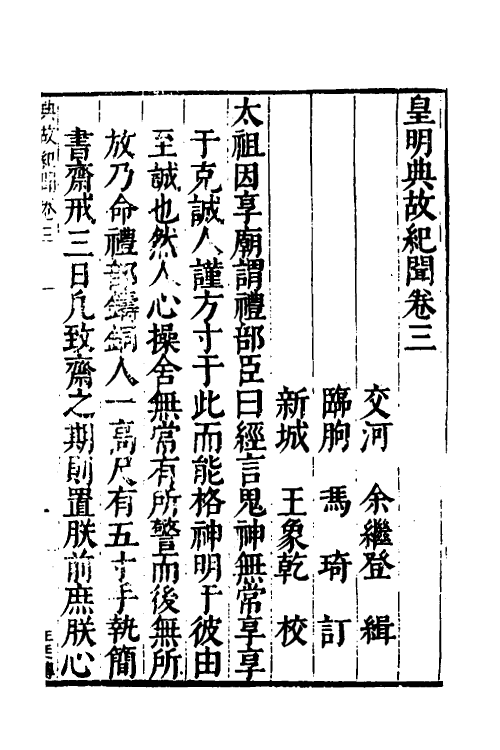 皇明典故紀聞卷三
交河 余繼登 緝
臨朐 馮琦 訂
新城 王象乾 校
太祖因享廟謂禮部臣曰經言鬼神無常享享
于克誠人謹方寸于此而能格神明于彼由
至誠也然人心操舍無常有所警而後無所
放乃命禮部鑄銅人一高尺有五寸手執簡
書齋戒三日凡致齋之期則置朕前庶朕心
典故紀聞卷三
一